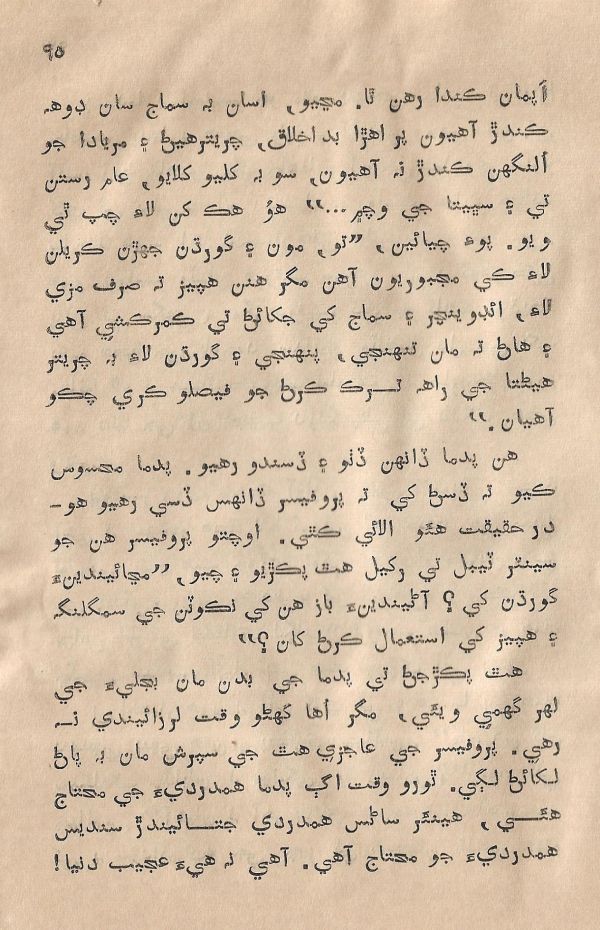 ٩٥
اَپمان ڪندا رهن ٿا. مڃيو, اسان بہ سماج سان دوهہ
ڪندڙ آهيون پر اهڙا بداخلاق, چريترهيڻ ۽ مريادا جو
اُلنگهن ڪندڙ نہ آهيون, سو بہ کليو کلايو, عام رستن
تي ۽ سڀيتا جي وچ ۾...“ هوُ هڪ کن لاءِ چپ ٿي
ويو. پوءِ چيائين, ”تو, مون ۽ گورڌن جهڙن ڪريلن
لاءِ ڪي مجبوريون آهن مگر هنن هپيز تہ صرف مزي
لاءِ, ائڊوينچر ۽ سماج کي جکائڻ تي ڪمرڪشي آهي
۽ هاڻ تہ مان تنهنجي, پنهنجي ۽ گورڌن لاءِ بہ چريتر
هيڻتا جي راهہ تــرڪ ڪرڻ جو فيصلو ڪري چڪو
آهيان.“
هن پدما ڏانهن ڏٺو ۽ ڏسندو رهيو. پدما محسوس
ڪيو تہ ڏسڻ کي تہ پروفيسر ڏانهس ڏسي رهيو هو-
در حقيقت هئو الائي ڪٿي. اوچتو پروفيسر هن جو
سينٽر ٽيبل تي رکيل هٿ پڪڙيو ۽ چيو, ”مڃائيندينءَ
گورڌن کي؟ آڻيندينءَ باز هن کي نڪوٽن جي سمگلنگ
۽ هپيز کي استعمال ڪرڻ کان؟“
هٿ پڪڙجڻ تي پدما جي بدن مان بجليءَ جي
لهر گهمي ويئي, مگر اُها گهڻو وقت لرزائيندي نــہ
رهي. پروفيسر جي عاجزي هٿ جي سپرش مان بہ پاڻ
لکائڻ لڳي. ٿورو وقت اڳ پدما همدرديءَ جي محتاج
هئــي, هينئر ساڻس همدردي جتــائيندڙ سنديس
همدرديءَ جو محتاج آهي. آهي نہ هيءَ عجيب دنيا!